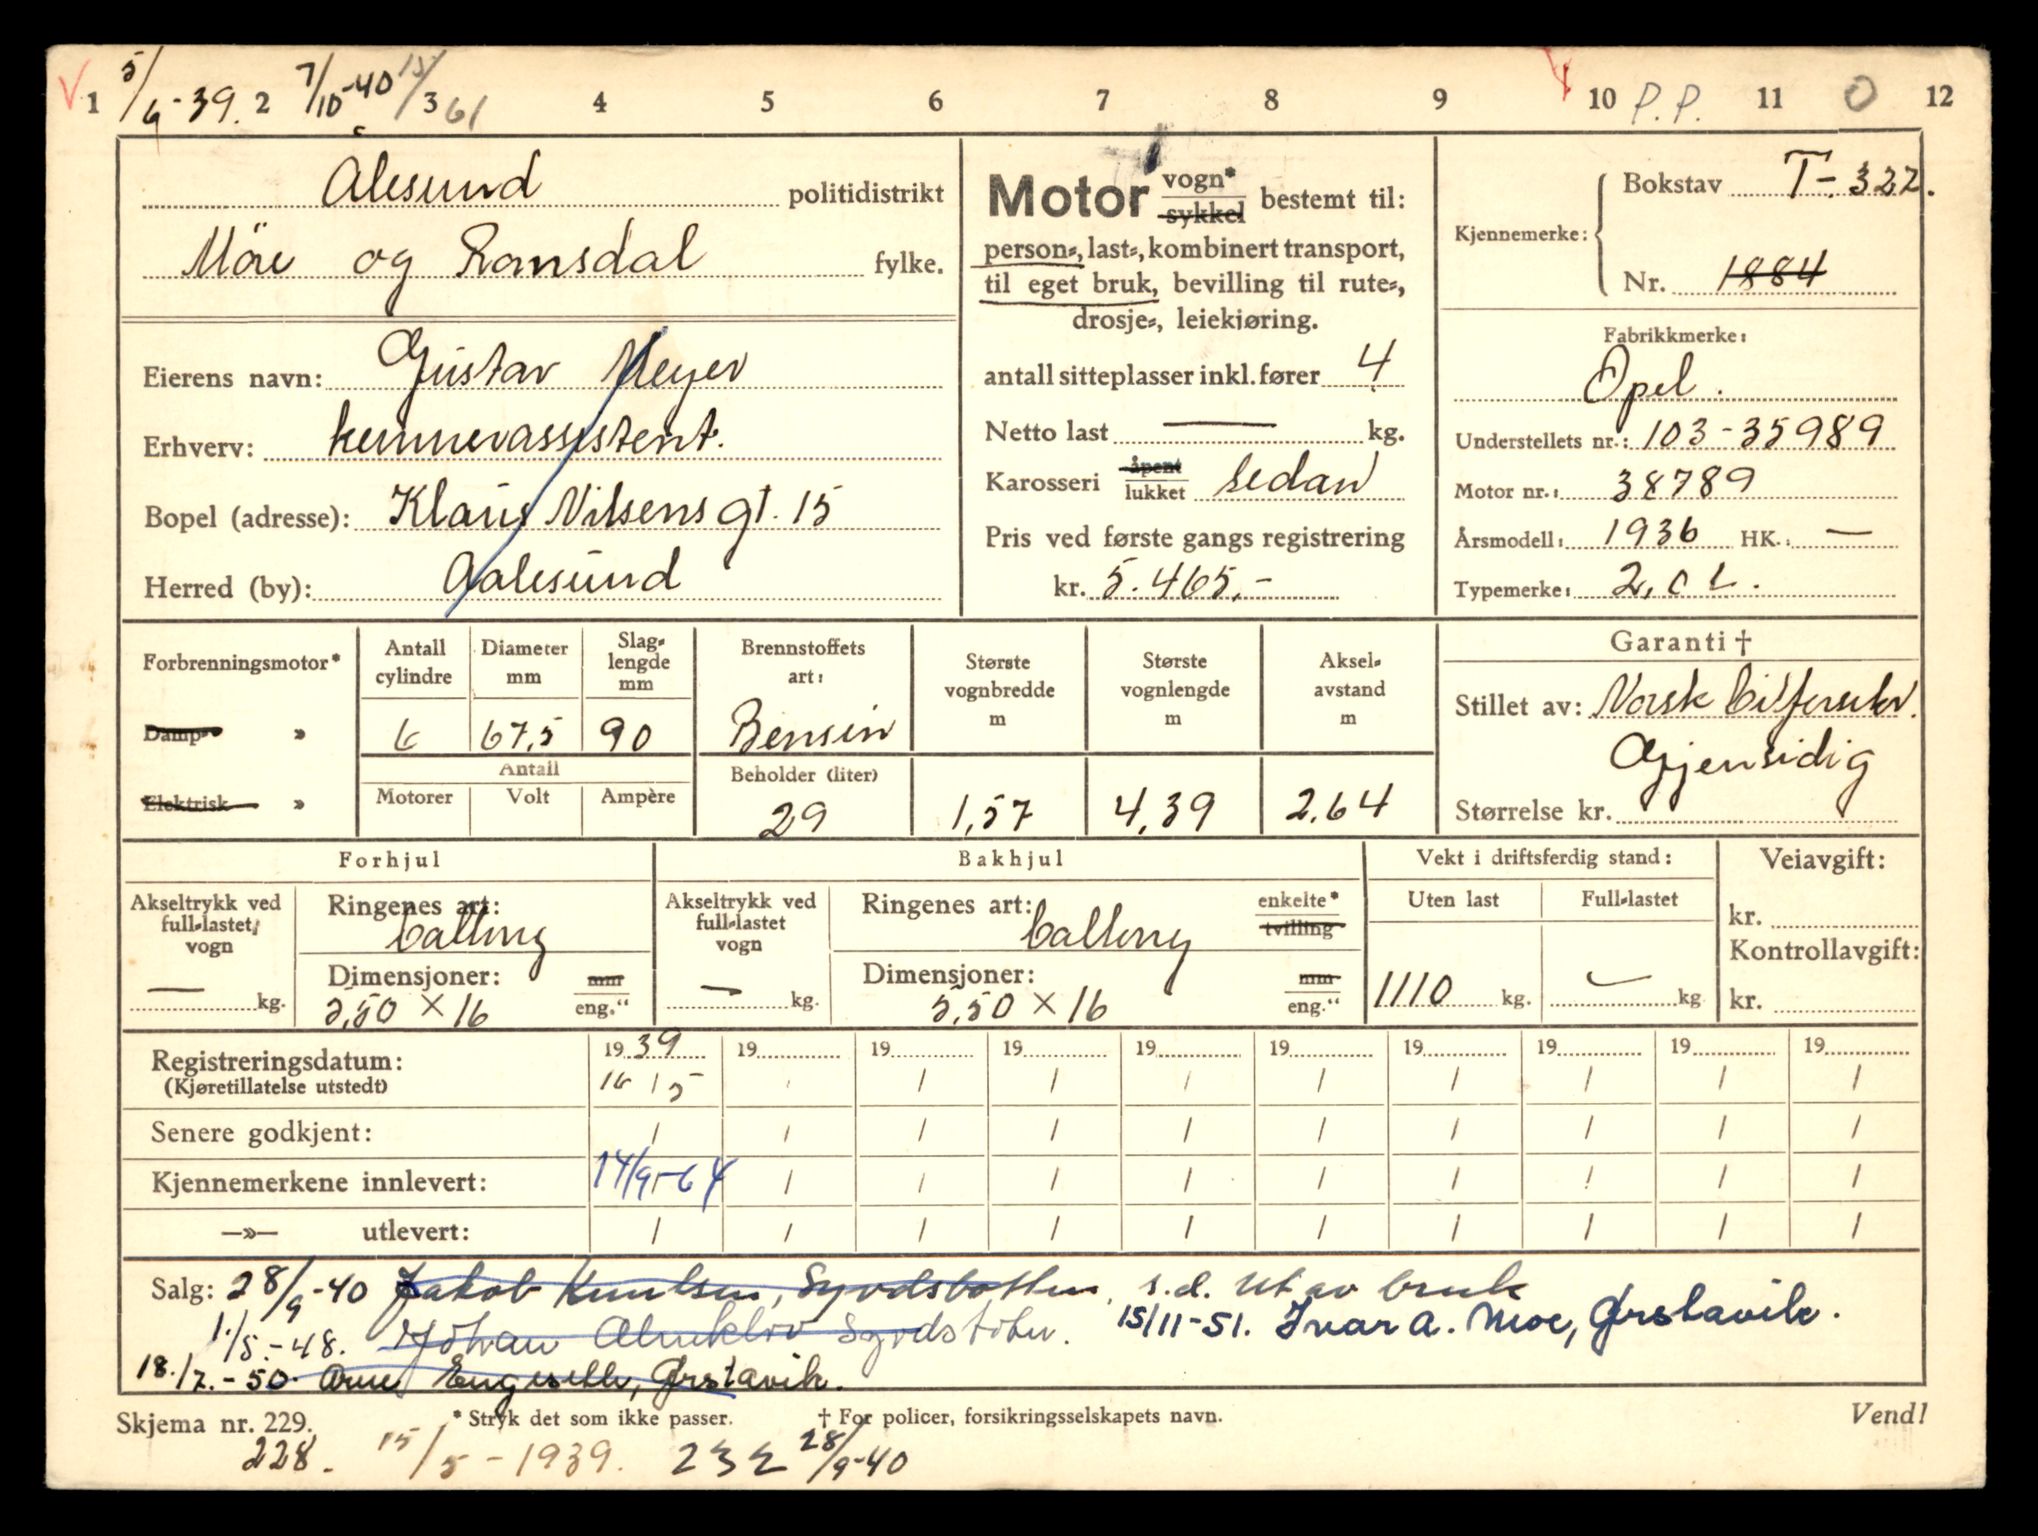 1 5/6-39. 2 7/10-40 3 15/61 4 5 6 7 8 9 10 P.P. 11 0 12
Alesund politidistrikt
Möre og Romsdal fylke.
Motor vogn* sykkel bestemt til:
person-, last-, kombinert transport,
til eget bruk, bevilling til rute-,
drosje-, leiekjøring.
antall sitteplasser inkl. fører 4
Netto last — kg.
Karosseri åpent lukket sedan
Pris ved første gangs registrering
kr. 5.465.-
Kjennemerke: Bokstav T-322.
Nr. 1884
Fabrikkmerke:
Opel.
Understellets nr.: 103-35989
Motor nr.: 38789
Årsmodell: 1936 HK.: —
Typemerke: 2,0 L.
Eierens navn: Gustav Meyer
Erhverv: kemnerassistent.
Bopel (adresse): Klaus Nilsens gt. 15
Herred (by): Aalesund
Forbrenningsmotor*
Damp- »
Elektrisk »
Antall cylindre 6
Diameter mm 67,5
Slaglengde mm 90
Antall
Motorer Volt Ampère
Brennstoffets art: Bensin
Beholder (liter) 29
Største vognbredde m 1,57
Største vognlengde m 4,39
Akselavstand m 2,64
Garanti †
Stillet av: Norsk Bilforsikr.
Gjensidig
Størrelse kr.
Forhjul
Akseltrykk ved full-lastet vogn — kg.
Ringenes art: Ballong
Dimensjoner: mm
5,50 × 16 eng."
Bakhjul
Akseltrykk ved full-lastet vogn — kg.
Ringenes art: Ballong enkelte* tvilling
Dimensjoner: mm
5,50 × 16 eng."
Vekt i driftsferdig stand:
Uten last Full-lastet
1110 kg. — kg
Veiavgift:
kr.
Kontrollavgift:
kr.
Registreringsdatum: 1939 19 19 19 19 19 19 19 19 19
(Kjøretillatelse utstedt) 16 / 5 / / / / / / / / /
Senere godkjent: / / / / / / / / / /
Kjennemerkene innlevert: 14/9-64 / / / / / / / / /
—»— utlevert: / / / / / / / / / /
Salg: 28/9-40 Jakob Knutsen, Syvdsbotten, s.d. Ut av bruk
1./5.-48. Johan Almklov Syvdsbotn. 15/11-51. Ivar A. Moe, Ørstavik.
18./7.-50. Arne Engeseth, Ørstavik.
Skjema nr. 229. * Stryk det som ikke passer. † For policer, forsikringsselskapets navn. Vend!
228. 15/5-1939. 232 28/9-40